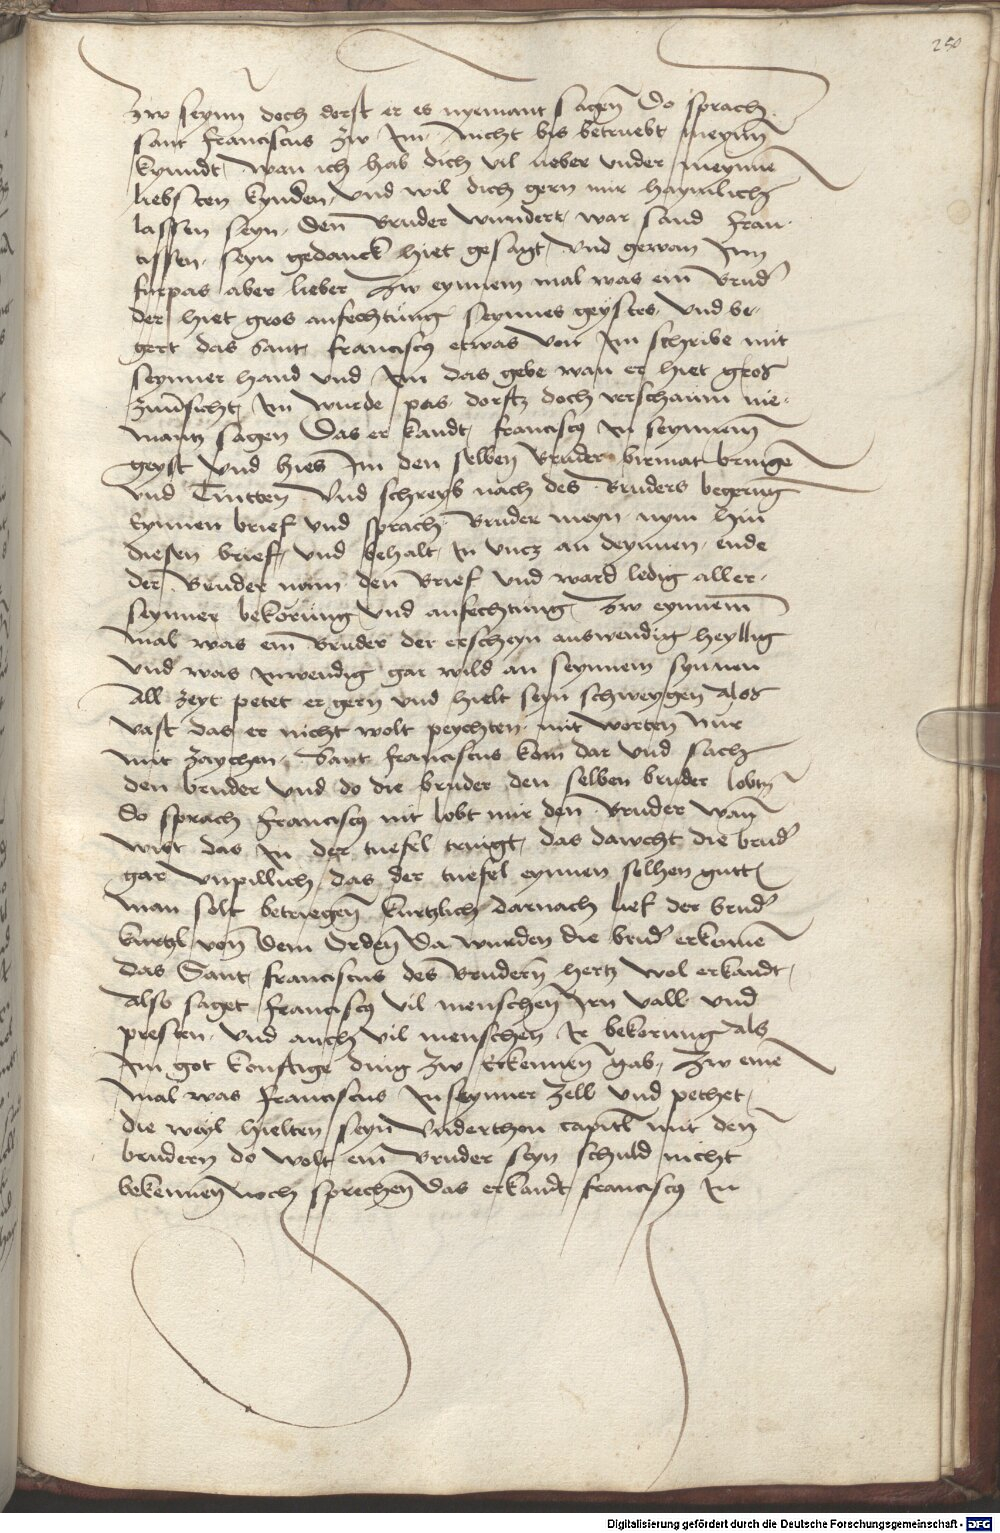 250
zw seynn doch dorst er es nyemant sagen Do sprach
sant franciscus zw Im nicht bis betruebt meynn
kynndt wan ich hab dich vil lieber vnder meynne
liebsten kynden vnd wil dich gern mir haymlich
lassen seyn Den Bruder wundert war sand fran
cissen seyn gedanck hiet gesagt vnd gewan Inn
furpas aber lieber Zw eynnem mal was ein Brud
der hiet gros anfechtung seynnes geystes vnd be
gert das Sant francisc9 etwas von Im schribe mit
seynner hand vnd Im das gebe wan er hiet gros
zuuersicht Im wurde pas dorftz doch vor scham nie
mantz sagen Das er kandt francisc9 In seynnem
geyst vnd hies Im den selben Bruder birmat bringe
vnd Tintten vnd schreyb nach des Bruders begerung
Eynnen brief vnd sprach Bruder meyn nym hin
diesen brief vnd behalt In vncz an deynnen ende
der Bruder nam den Brief vnd ward ledig aller
seynner bekorung vnd anfechtung Zw eynnem
mal was ein Bruder der erscheyn auswendig heyllig
vnd was Inwendig gar wild an seynnem synnen
All zeyt petet er gern vnd hielt seyn schweygen also
vast das er nicht wolt peychten mit worten nur
mit zaychen Sant franciscus kom dar vnd sach
den bruder vnd do die bruder den selben bruder lobtn
Do sprach francisc9 nit lobt mir den Bruder wan
wist das In der tuefel trugt das dawcht die brud
gar vnpillich das der tuefel eynnen solhen gutt
man solt betriegen kurtzlich darnach lief der brud
kurtzl von dem Orden Da wurden die brud erkomē
das Sant franciscus des Brudern hertz wol erkandt
Also saget francisc9 vil menschen Irn vall vnd
presten vnd auch vil menschen Ir bekorung Als
Im got konftige ding zw Erkennen gab Zw eine
mal was franciscus In seynner Zell vnd pethet
die weyl hielten seyn vnderthon capitl mit den
brudern do wolt ein Bruder seyn schuld nicht
bekennen noch sprechen das erkandt francisc9 In
Digitalisierung gefördert durch die Deutsche Forschungsgemeinschaft - DFG